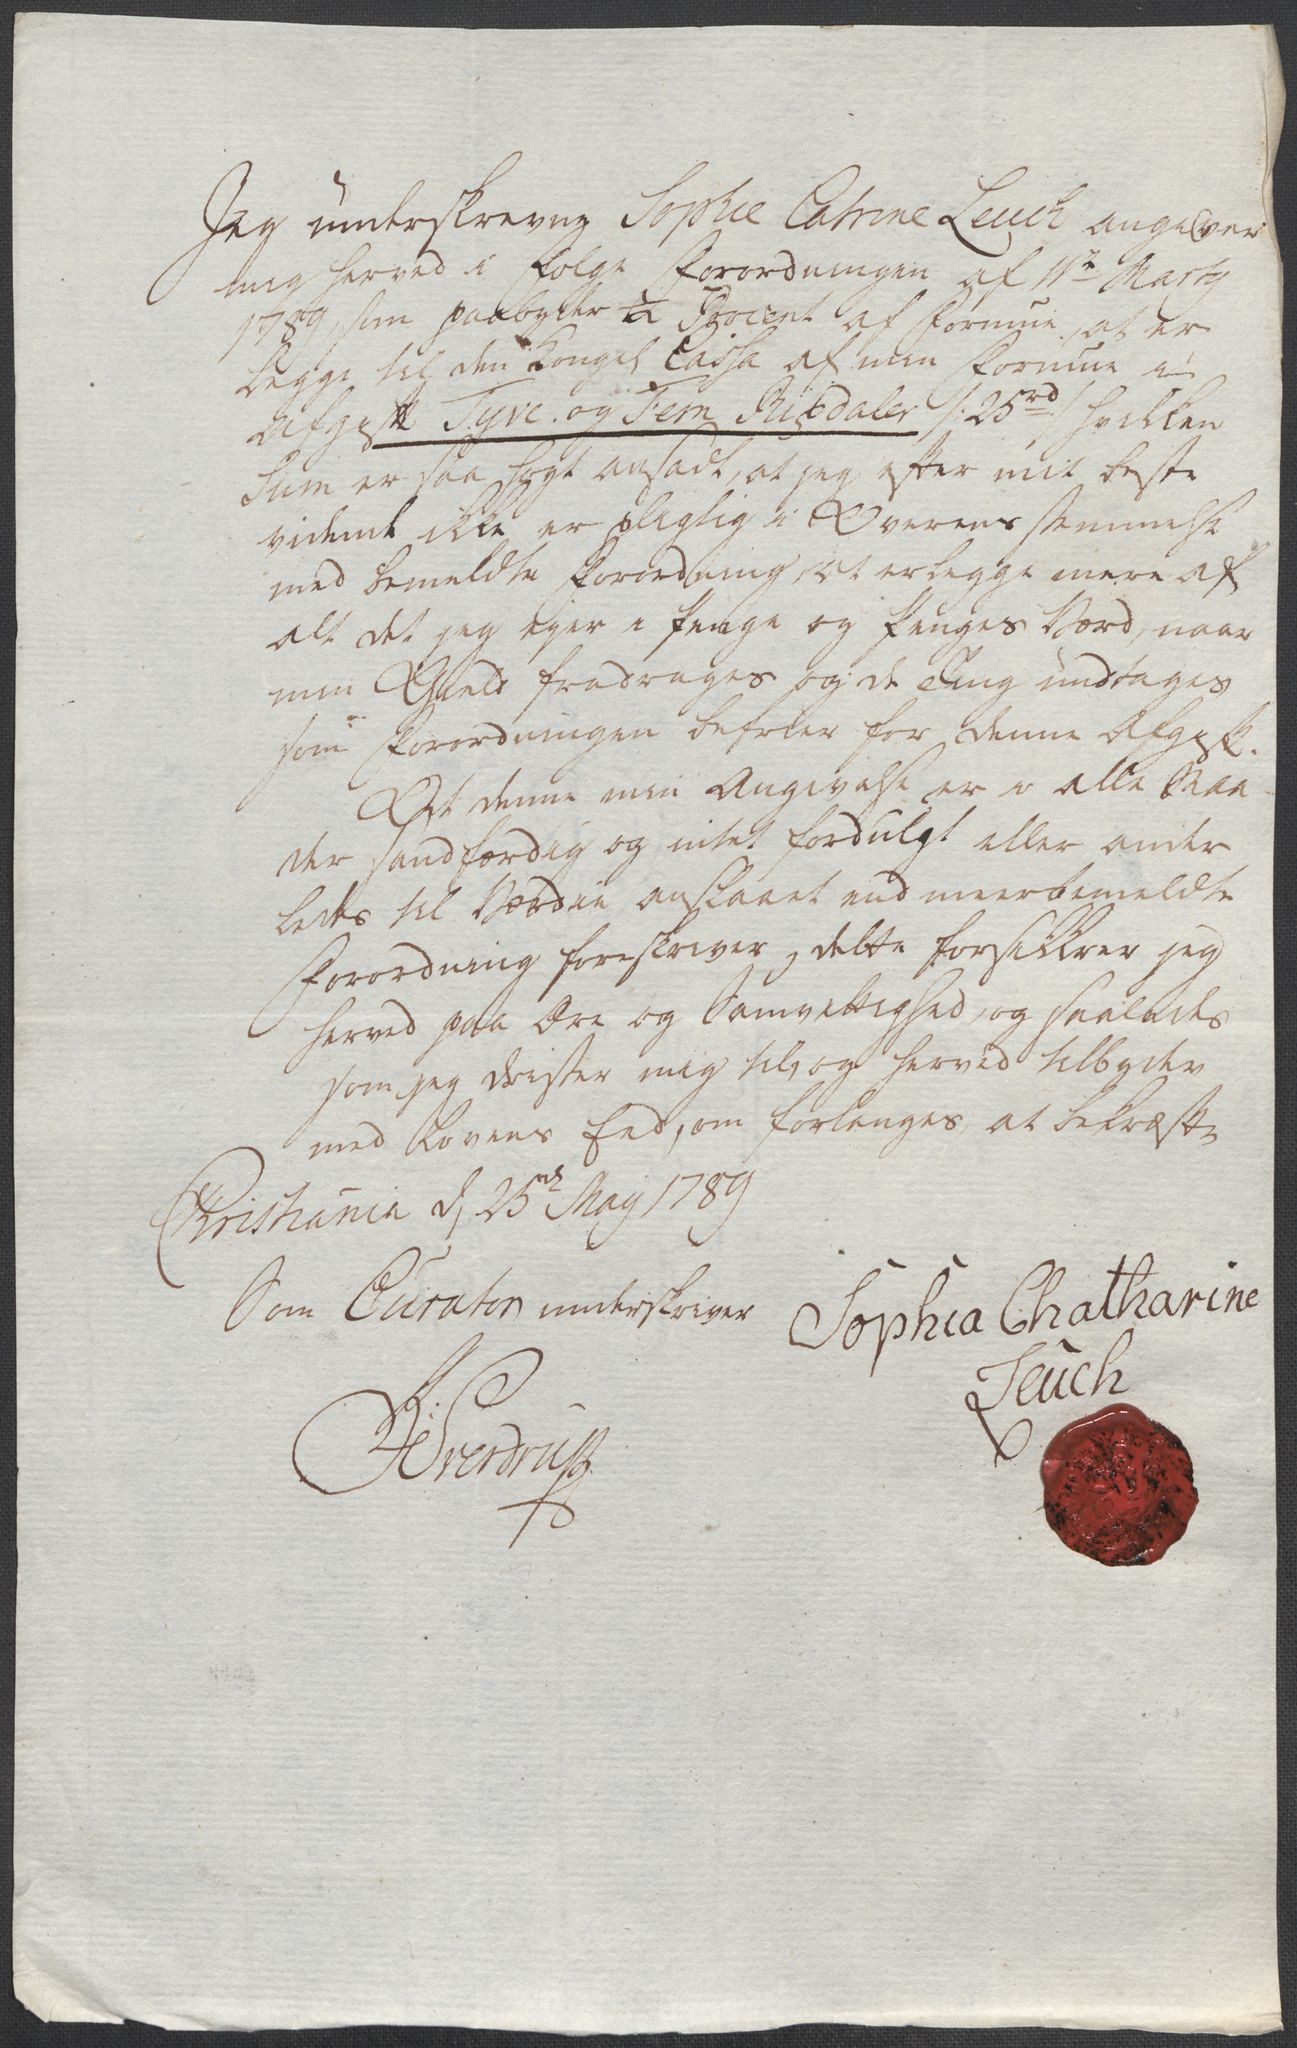 Jeg underskrevne Sophie Catrine Leuch angiver
mig herved i Følge Forordningen af 11te Marty
1789, som paabyder 1/2 Procent af Formue, at er
legge til den Kongel Cassa af min Formue i
Afgift Tyve og Fem Rixdaler /: 25rd :/ hvilken
Sum er saa høyt ansadt, at jeg efter mit beste
vidende ikke er pligtig i Overensstemmelse
med bemeldte Forordning, at erlegge mere af
alt det jeg ejer i Penge og Penges Værd, naar
min Gield fradrages og de Ting undtages
som Forordningen befrier for denne Afgift.
At denne min Angivelse er i alle Maa
der sandfærdig og intet fordulgt eller ander
ledes til Værdie anslaaet end meerbemeldte
Forordning foreskriver, dette forsikkrer jeg
herved paa Ære og Samvittighed, og saaledes
som jeg trister mig til, og herved tilbyder
med Lovens Eed, om forlanges, at bekræfte
Christiania d, 25de May 1789
Som Curator underskriver
Sophia Chatharine
Leuch
Sverdrup